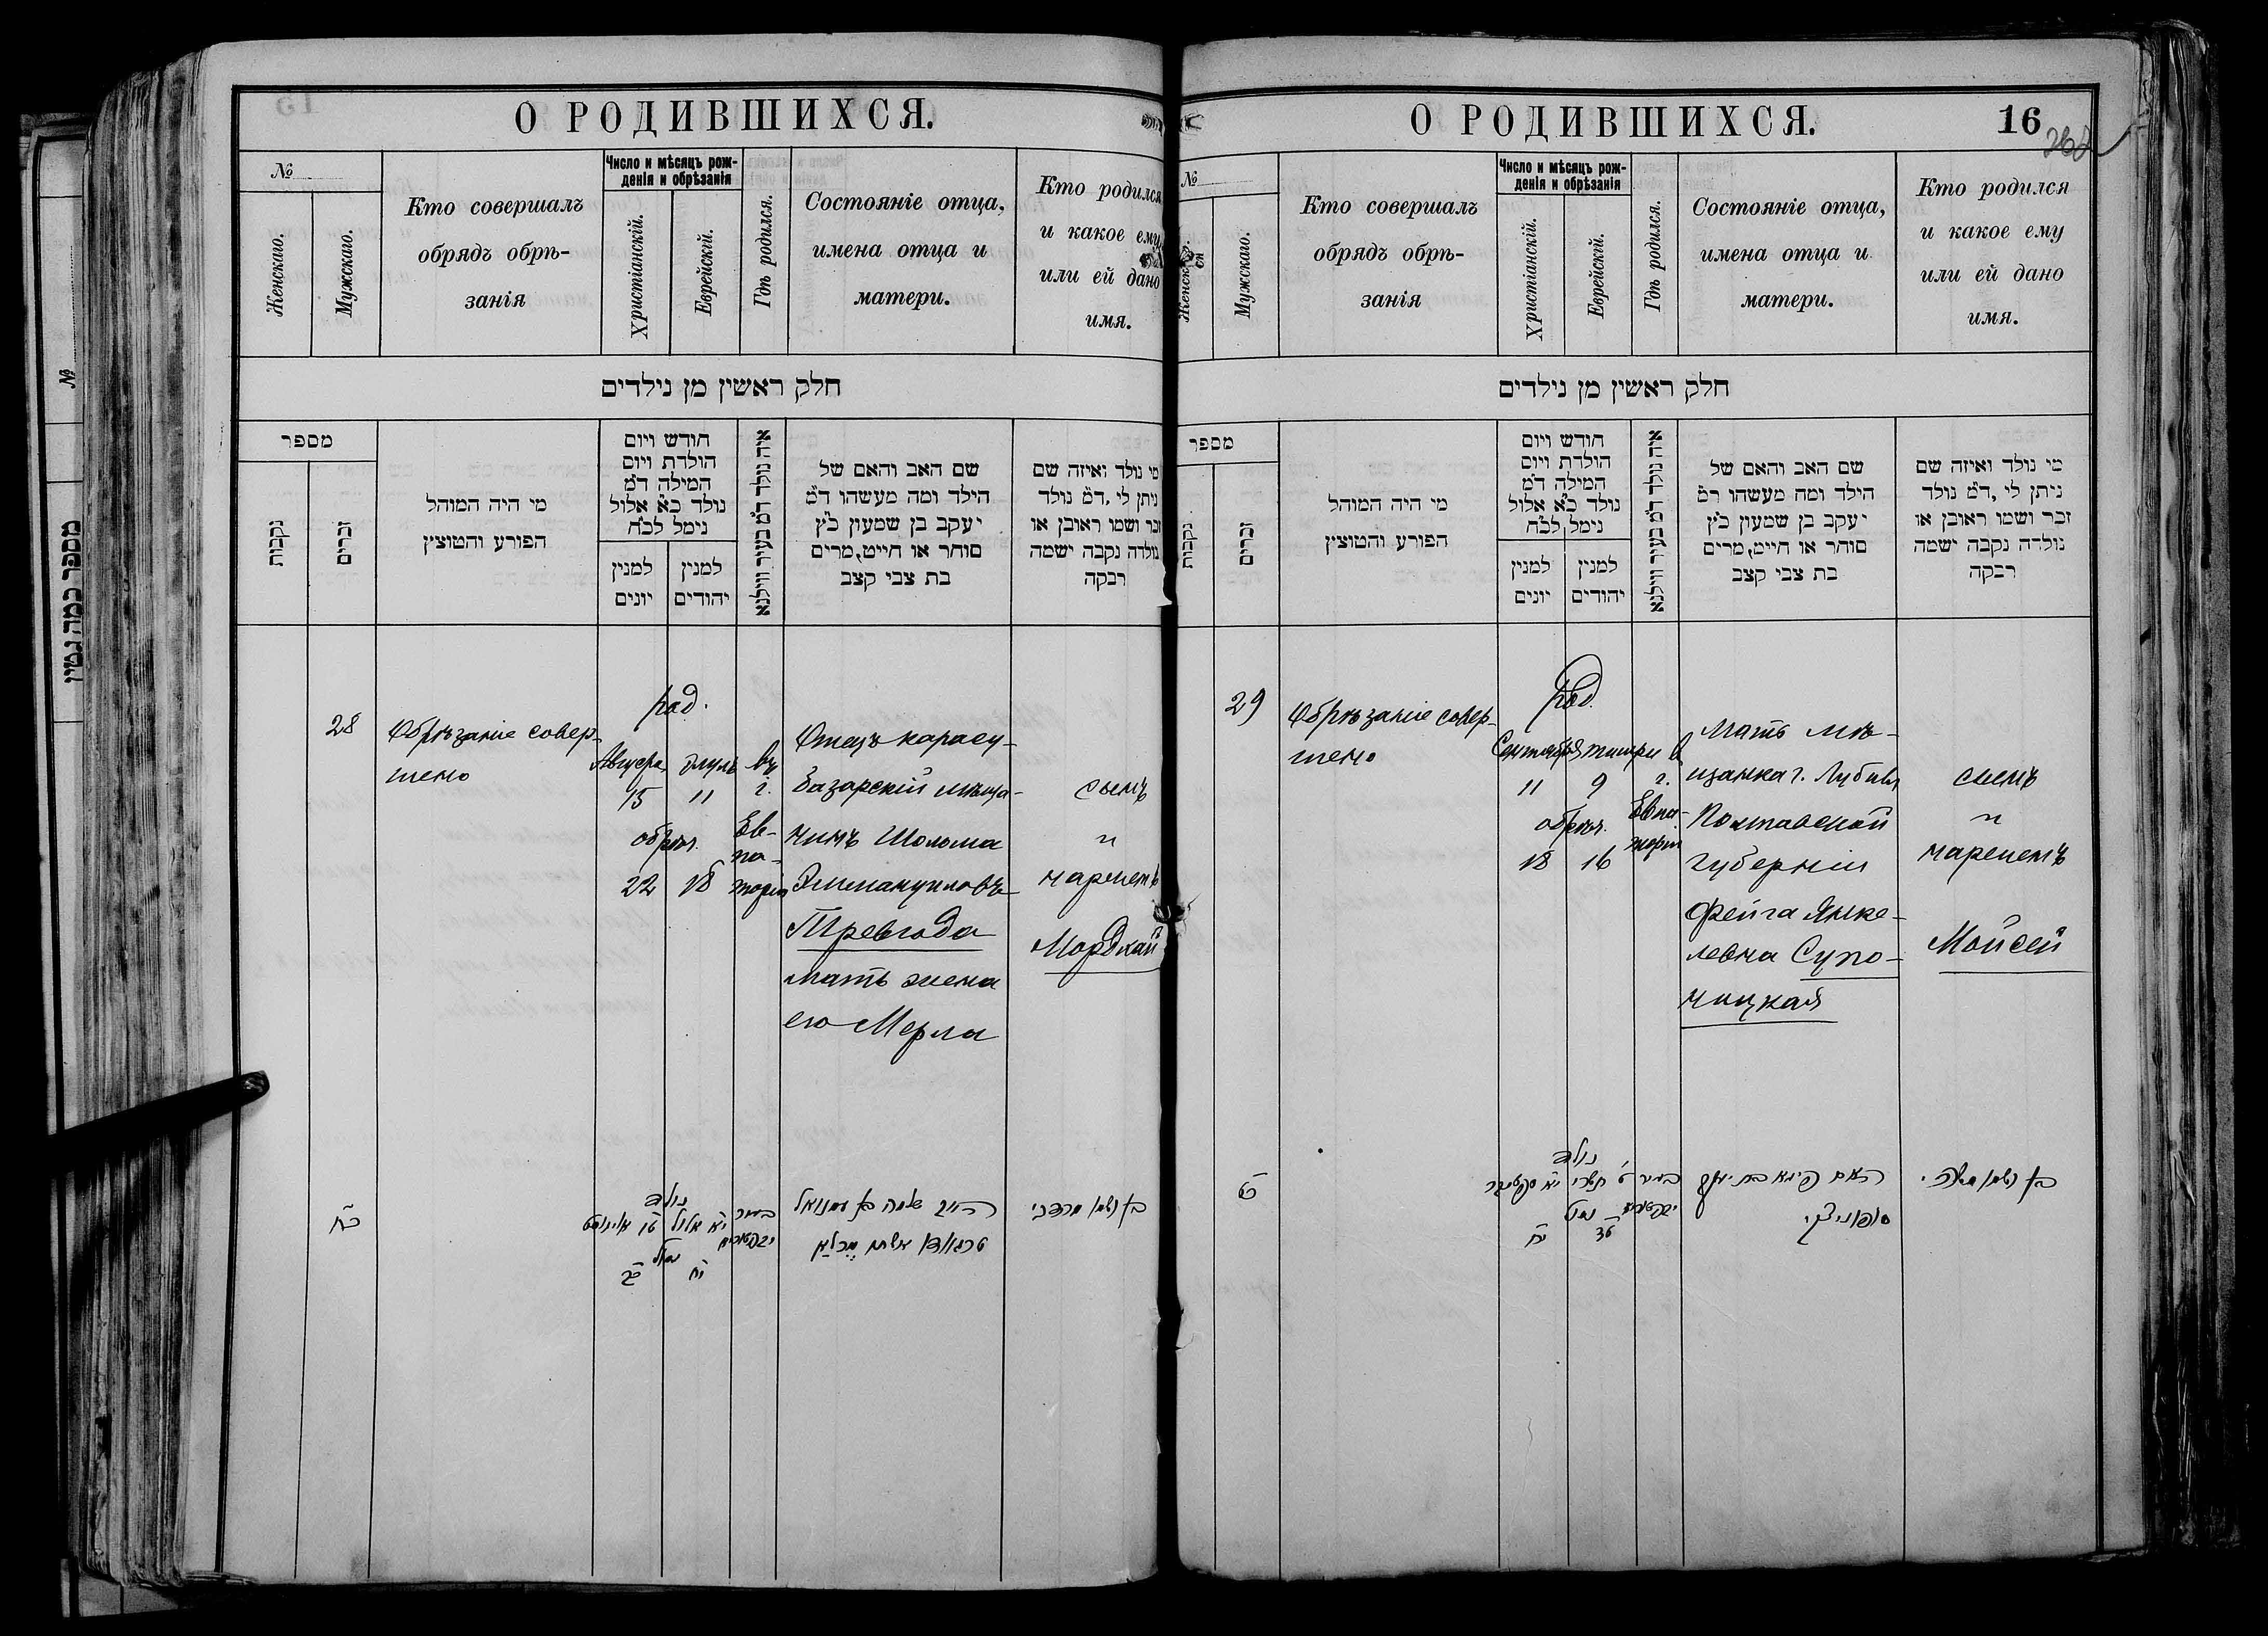 О РОДИВШИХСЯ.
№
Женскаго.
Мужскаго.
Кто совершалъ
обрядъ обрѣ-
занія
Число и мѣсяцъ рож-
денія и обрѣзанія
Христіанскій.
Еврейскій.
Гдѣ родился.
Состояніе отца,
имена отца и
матери.
Кто родился
и какое ему
или ей дано
имя.
חלק ראשין מן נילדים
מספר
נקבות
זכרים
מי היה המוהל
הפורע והמוצץ
חודש ויום
הולדת ויום
המילה ד״מ
נולד כ״א אלול
נימל לכ״ח
למנין
יונים
למנין
יהודים
איה נולד ד״מ בעיר ווילנא
שם האב והאם של
הילד ומה מעשהו ד״מ
יעקב בן שמעון כ״ץ
סוחר או חייט, מרים
בת צבי קצב
מי נולד ואיזה שם
ניתן לי, ד״מ נולד
זכר ושמו ראובן או
נולדה נקבה ישמה
רבקה
28
Обрѣзаніе совер-
шено
род.
Августа
15
Элулъ
11
обрѣз.
22
18
въ
г.
Ев-
па-
торіи
Отецъ карасу-
базарскій мѣща-
нинъ Шолома
Эммануиловъ
Тревгода
мать жена
его Мерла
сынъ
"
нареченъ
Мордхай
כ״ח
נולד
ט״ו אויגוסט
י״א אלול
נימול
כ״ב
י״ח
בעיר
האב שלמה בן עמנואל
אשתו מרלא
בן ושמו מרדכי
О РОДИВШИХСЯ.
16
№
Женскаго.
Мужскаго.
Кто совершалъ
обрядъ обрѣ-
занія
Число и мѣсяцъ рож-
денія и обрѣзанія
Христіанскій.
Еврейскій.
Гдѣ родился.
Состояніе отца,
имена отца и
матери.
Кто родился
и какое ему
или ей дано
имя.
חלק ראשין מן נילדים
מספר
נקבות
זכרים
מי היה המוהל
הפורע והמוצץ
חודש ויום
הולדת ויום
המילה ד״מ
נולד כ״א אלול
נימל לכ״ח
למנין
יונים
למנין
יהודים
איה נולד ד״מ בעיר ווילנא
שם האב והאם של
הילד ומה מעשהו ד״מ
יעקב בן שמעון כ״ץ
סוחר או חייט, מרים
בת צבי קצב
מי נולד ואיזה שם
ניתן לי, ד״מ נולד
זכר ושמו ראובן או
נולדה נקבה ישמה
רבקה
29
Обрѣзаніе совер-
шено
род.
Сентября
11
тишри
9
обрѣз.
18
16
в
г.
Евпа-
торіи
Мать мѣ-
щанка г. Лубны
Полтавской
губерніи
Фейга Янке-
левна Супо-
ницкая
сынъ
"
нареченъ
Мойсей
נולד
ט׳ תשרי
נמול
י״ח
ט״ז
בעיר
האם פייגא בת יענקל
סופוניצקי
בן ושמו משה